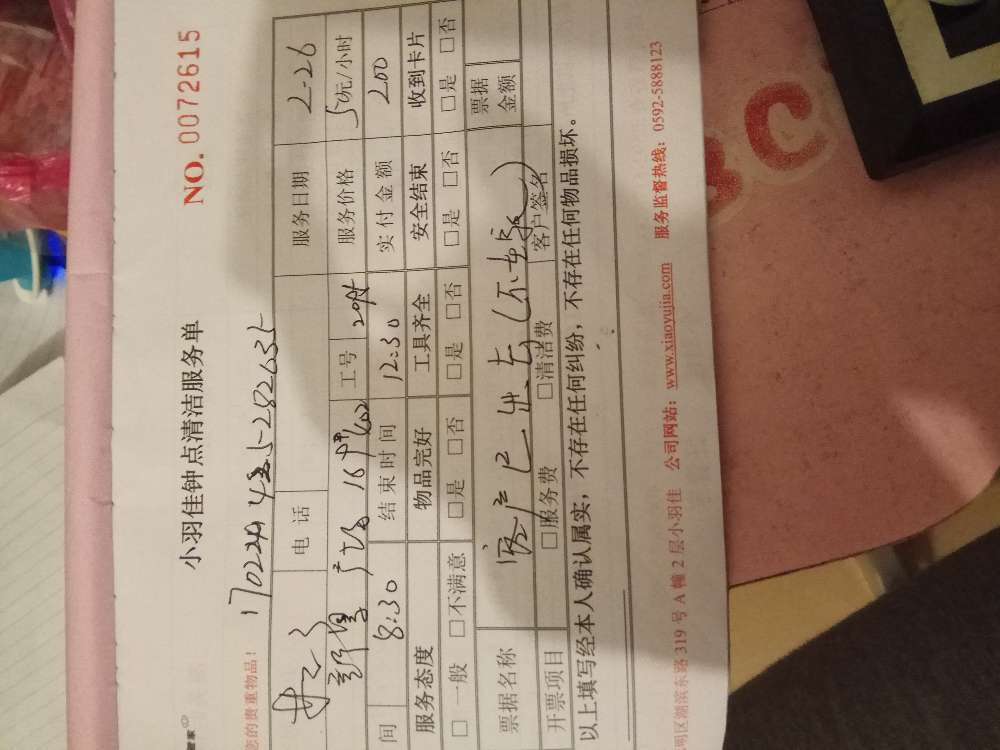 管家
小羽佳钟点清洁服务单
NO. 0072615
您的贵重物品!
电话
服务日期 2-26
广场 工号 服务价格 50元/小时
间 8:30 结束时间 12:30 实付金额 200
服务态度 物品完好 工具齐全 安全结束 收到卡片
□ 一般 □ 不满意 □是 □否 □是 □否 □是 □否 □是 □否
票据名称 客户已出去(不在家) 票据金额
开票项目 □服务费 □清洁费 客户签名
以上填写经本人确认属实,不存在任何纠纷,不存在任何物品损坏。
明区湖滨东路 319 号 A 幢 2 层小羽佳 公司网站:www.xiaoyujia.com 服务监督热线:0592-5888123